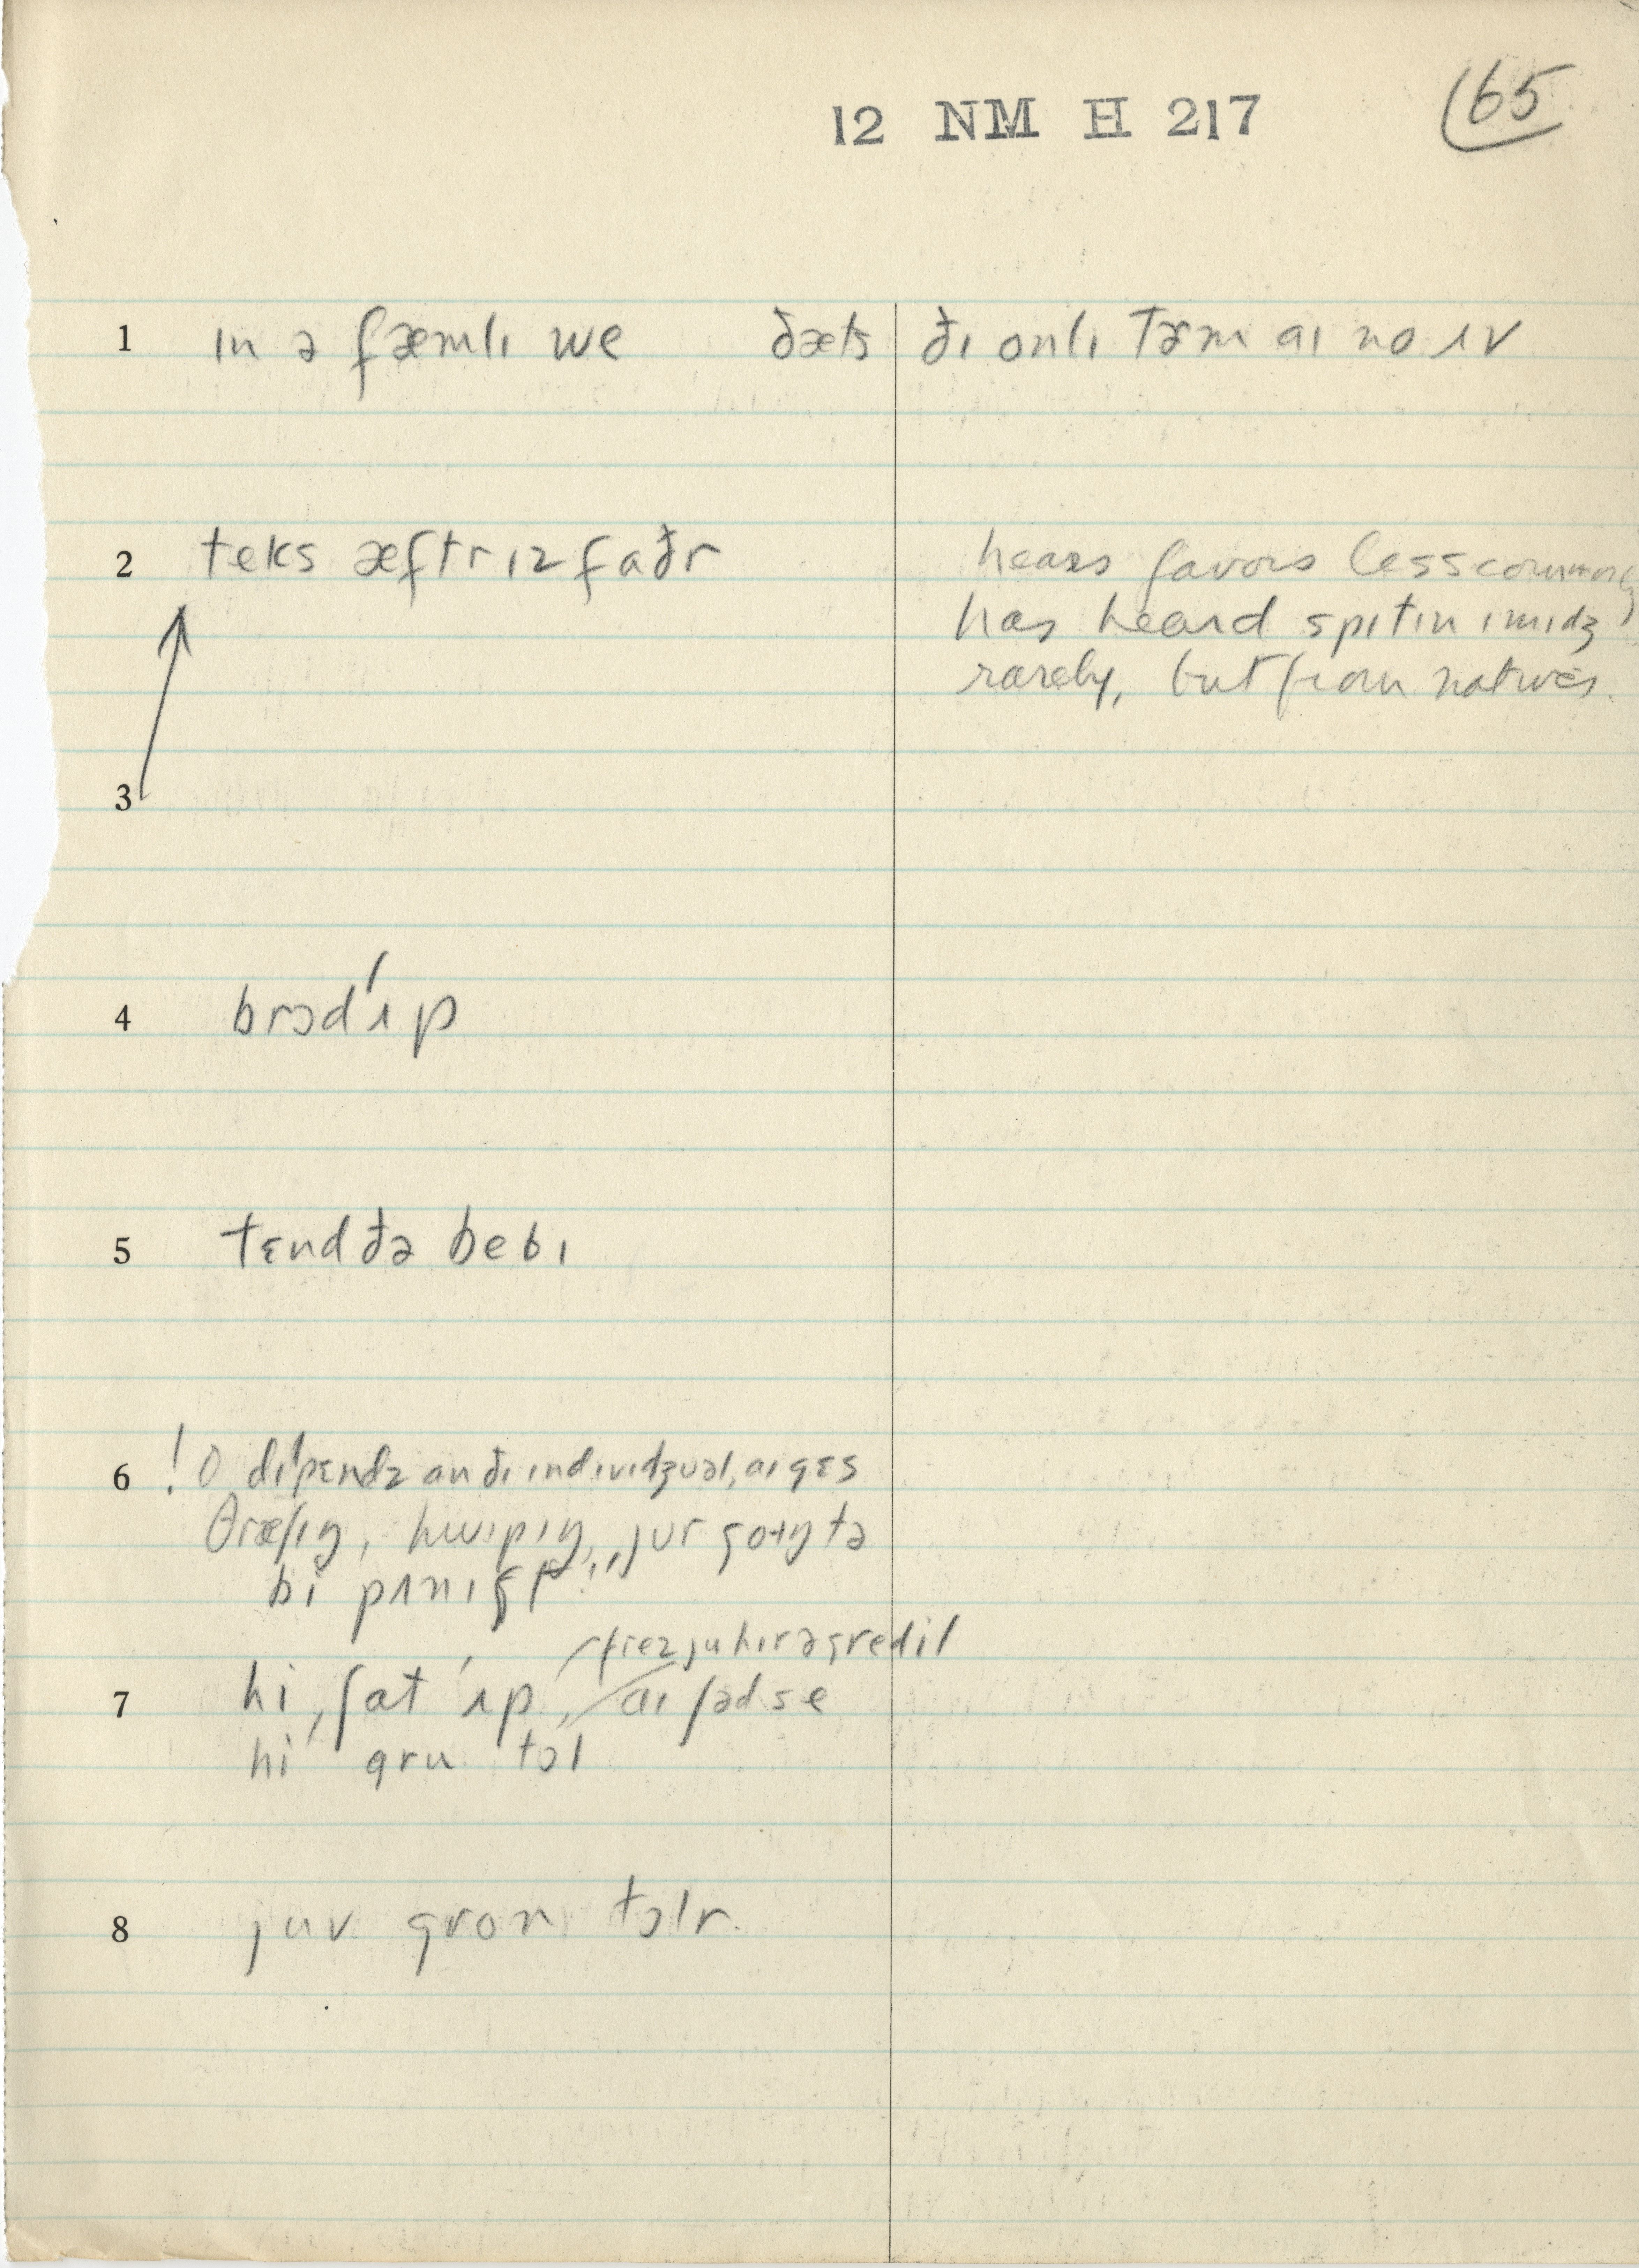 12 NM H 217
65
1 ɪn ə fæmlɪ we ðæts ðɪ onlɪ tɚm aɪ no ʌv
2 teks æftr ɪz faðr
hears favors less commonly
has heard spɪtɪn ɪmɪdʒ
rarely, but from natives.
3
4 brɔd ʹʌp
5 tɛnd ðə bebɪ
6 ! o dɪˈpɛndz an ðɪ ɪndɪvɪdʒuəl, aɪ gɛs
θræʃɪŋ, hwɪpɪŋ, jur goɪŋ tə
bi pʌnɪʃt
frez ju hɪr ə gredɪl
7 hi ʃat ʹʌp, aɪ ʃəd se
hi gru tɔl
8 juv gron tɔlr.